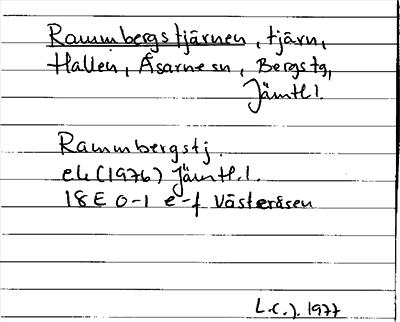 Rammbergstjärnen, tjärn,
Hallen, Åsarne sn, Bergs tg,
Jämtl.l.
Rammbergstj.
ek (1976) Jämtl.l.
18E 0-1 e-f Västeråsen
L.C.J. 1977